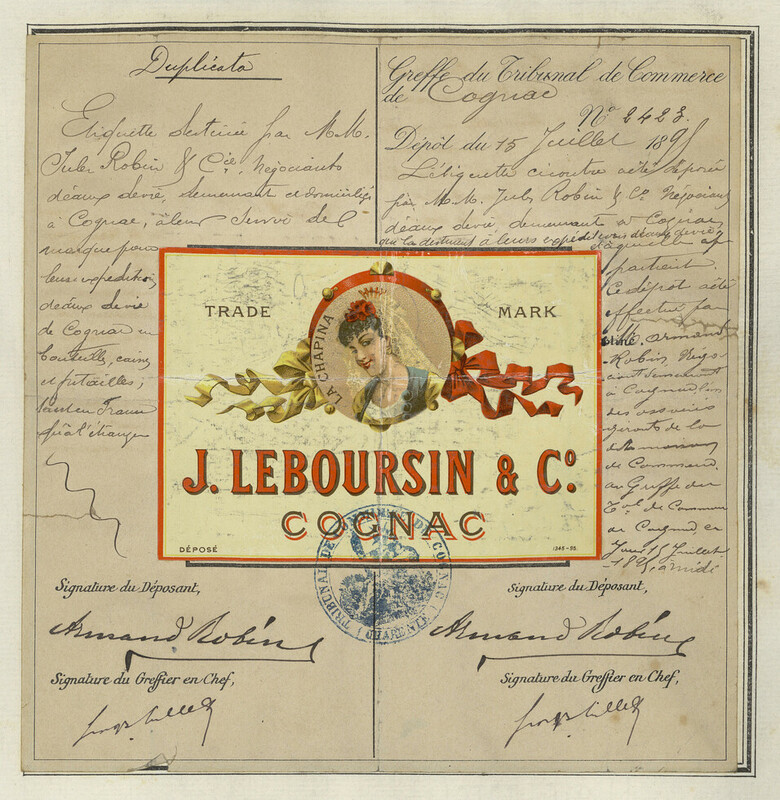 Duplicata
Etiquette destinée par M.M.
Jules Robin & Cie, Négociants
d'eaux de vie, demeurant et domiciliés
à Cognac, à leur servir de
marque pour
leurs expéditions
d'eaux de vie
de Cognac en
bouteilles, caisses
et futailles,
tant en France
qu'à l'étranger
Signature du Déposant,
Armand Robin
Signature du Greffier en Chef,
Greffe du Tribunal de Commerce
de Cognac
No 2423.
Dépôt du 15 Juillet 1895
L'étiquette ci contre a été déposée
par M.M. Jules Robin & Co Négociants
d'eaux de vie, demeurant à Cognac,
qui la destinent à leurs expéditions d'eaux de vie
laquelle ap
partient.
Ce dépôt a été
effectué par
Armand
Robin, Négo
ciant demeurant
à Cognac, l'un
des associés
gérants de la
maison
de Commerce
au Greffe du
Tal de Commerce
de Cognac, ce
jour 15 Juillet
1895, à midi
Signature du Déposant,
Armand Robin
Signature du Greffier en Chef,
TRADE MARK
LA CHAPINA
J. LEBOURSIN & Co.
COGNAC
DÉPOSÉ
1345-95.
TRIBUNAL DE COMMERCE DE COGNAC
(CHARENTE)